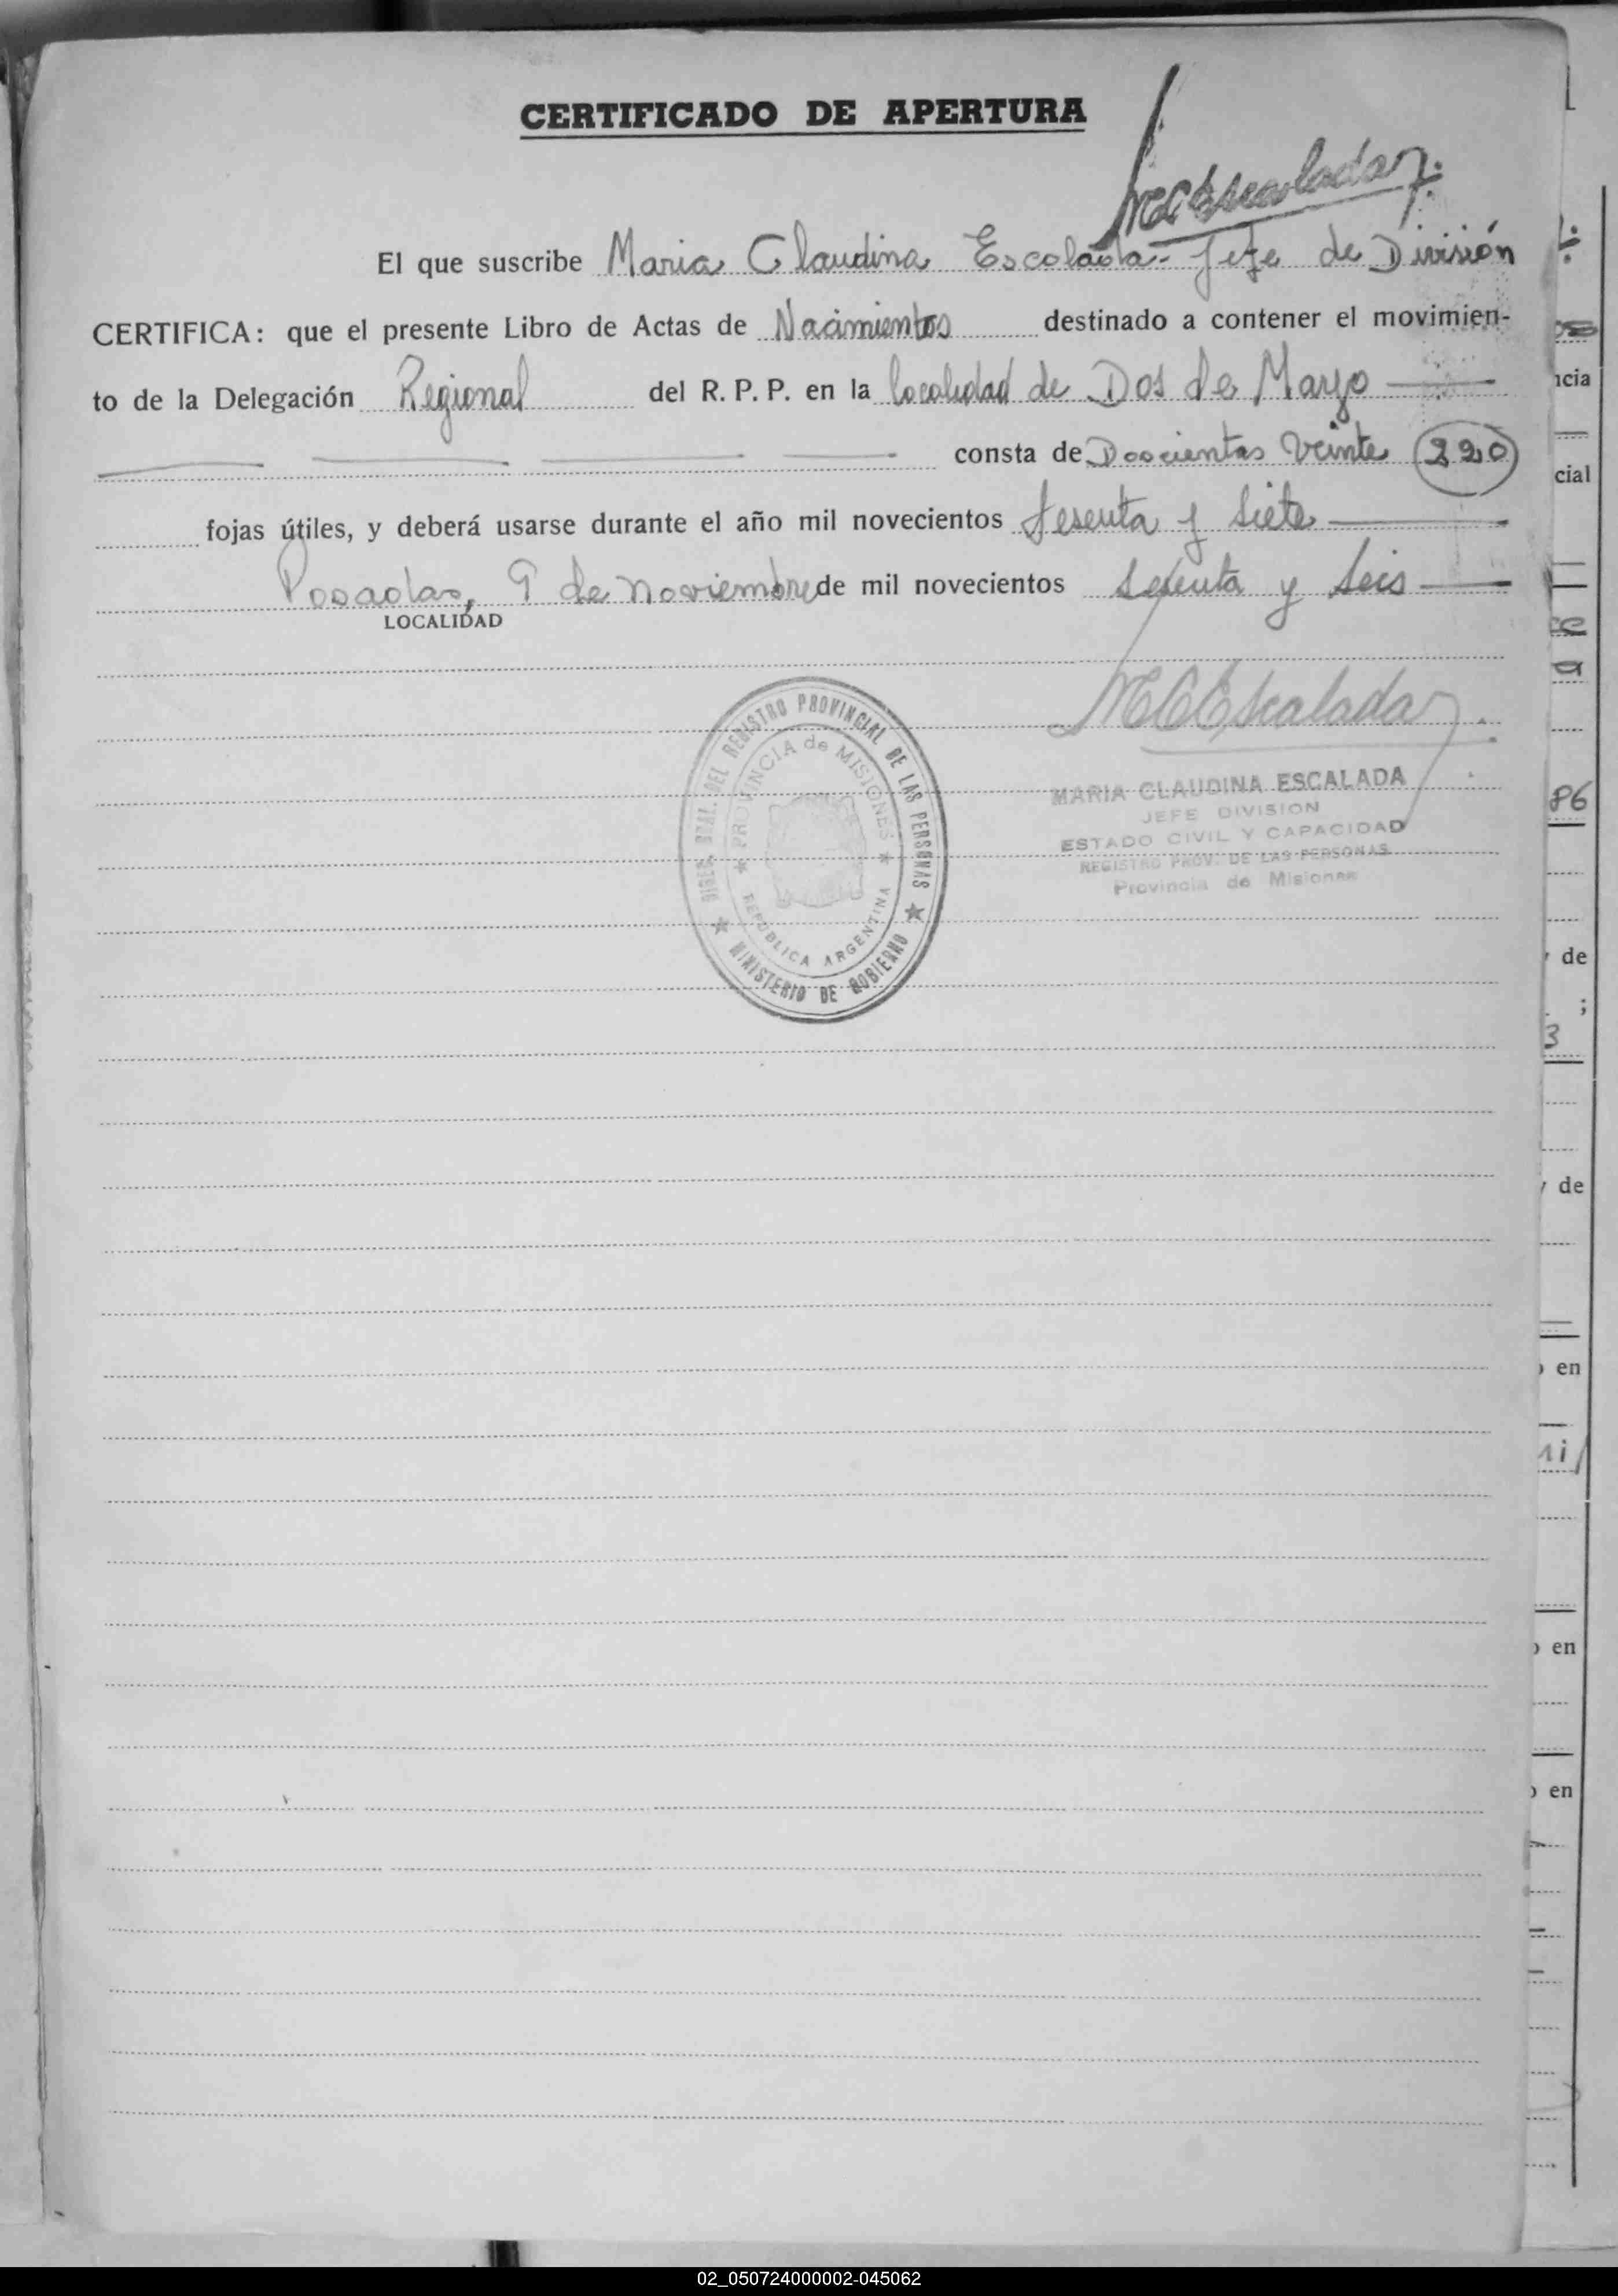 CERTIFICADO DE APERTURA
MCEscalada
El que suscribe Maria Claudina Escalada - Jefe de División
CERTIFICA: que el presente Libro de Actas de Nacimientos destinado a contener el movimien-
to de la Delegación Regional del R. P. P. en la localidad de Dos de Mayo
consta de Doscientas Veinte 220
fojas útiles, y deberá usarse durante el año mil novecientos setenta y siete
Posadas, 9 de noviembre de mil novecientos setenta y seis
LOCALIDAD
MCEscalada
DIREC. GRAL. DEL REGISTRO PROVINCIAL DE LAS PERSONAS
PROVINCIA de MISIONES
REPUBLICA ARGENTINA
MINISTERIO DE GOBIERNO
MARIA CLAUDINA ESCALADA
JEFE DIVISION
ESTADO CIVIL Y CAPACIDAD
REGISTRO PROV. DE LAS PERSONAS
Provincia de Misiones
ncia
cial
86
de
;
3
de
en
en
en
02_050724000002-045062